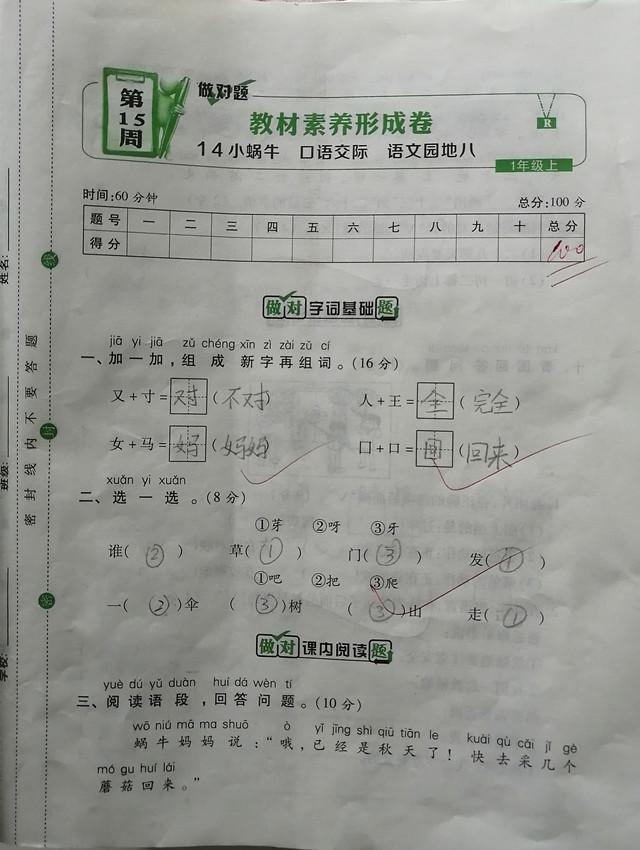 第15周
做对题
教材素养形成卷
R
14小蜗牛 口语交际 语文园地八
1年级上
时间:60分钟 总分:100分
题号 一 二 三 四 五 六 七 八 九 十 总分
得分 100
做对字词基础题
jiā yi jiā zǔ chéng xīn zì zài zǔ cí
一、加一加,组成新字再组词。(16分)
又+寸=对(不对) 人+王=全(完全)
女+马=妈(妈妈) 囗+口=回(回来)
xuǎn yi xuǎn
二、选一选。(8分)
①芽 ②呀 ③牙
谁(②) 草(①) 门(③) 发(①)
①吧 ②把 ③爬
一(②)伞 (③)树 (③)山 走(①)
做对课内阅读题
yuè dú yǔ duàn huí dá wèn tí
三、阅读语段,回答问题。(10分)
wō niú mā ma shuō ò yǐ jīng shì qiū tiān le kuài qù cǎi jǐ gè
蜗牛妈妈说:“哦,已经是秋天了!快去采几个
mó gu huí lái
蘑菇回来。”
姓名:
班级:
学校:
密封线内不要答题
线
封
密